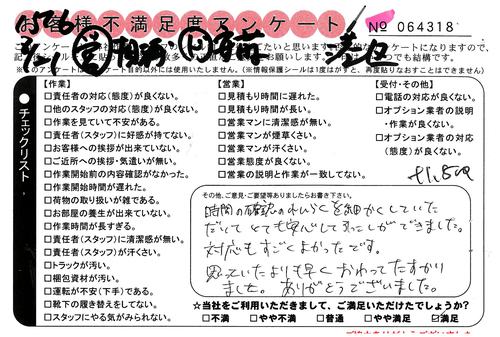 お客様不満足度アンケート
№ 064318
チェックリスト
【作業】
□責任者の対応(態度)が良くない。
□他のスタッフの対応(態度)が良くない。
□作業を見ていて不安がある。
□責任者(スタッフ)に好感が持てない。
□お客様への挨拶が出来ていない。
□ご近所への挨拶・気遣いが無い。
□作業開始前の内容確認がなかった。
□作業開始時間が遅れた。
□荷物の取り扱いが雑である。
□お部屋の養生が出来ていない。
□作業時間が長すぎる。
□責任者(スタッフ)に清潔感が無い。
□責任者(スタッフ)が汗くさい。
□トラックが汚い。
□梱包資材が汚い。
□運転が不安(下手)である。
□靴下の履き替えをしてない。
□スタッフにやる気がみられない。
【営業】
□見積もり時間に遅れた。
□見積もり時間が長い。
□営業マンに清潔感が無い。
□営業マンが煙草くさい。
□営業マンが汗くさい。
□営業態度が良くない。
□営業の説明と作業が一致してない。
【受付・その他】
□電話の対応が良くない。
□オプション業者の説明・作業が良くない。
□オプション業者の対応(態度)が良くない。
その他、ご意見・ご要望等ありましたらお書き下さい。
時間の確認のれんらくを細かくしていた
だいてとても安心してひっこしができました。
対応もすごくよかったです。
思っていたよりも早くおわってたすかり
ました。ありがとうございました。
☆当社をご利用いただきまして、ご満足いただけたでしょうか?
□不満 □やや不満 □普通 □やや満足 ☑満足